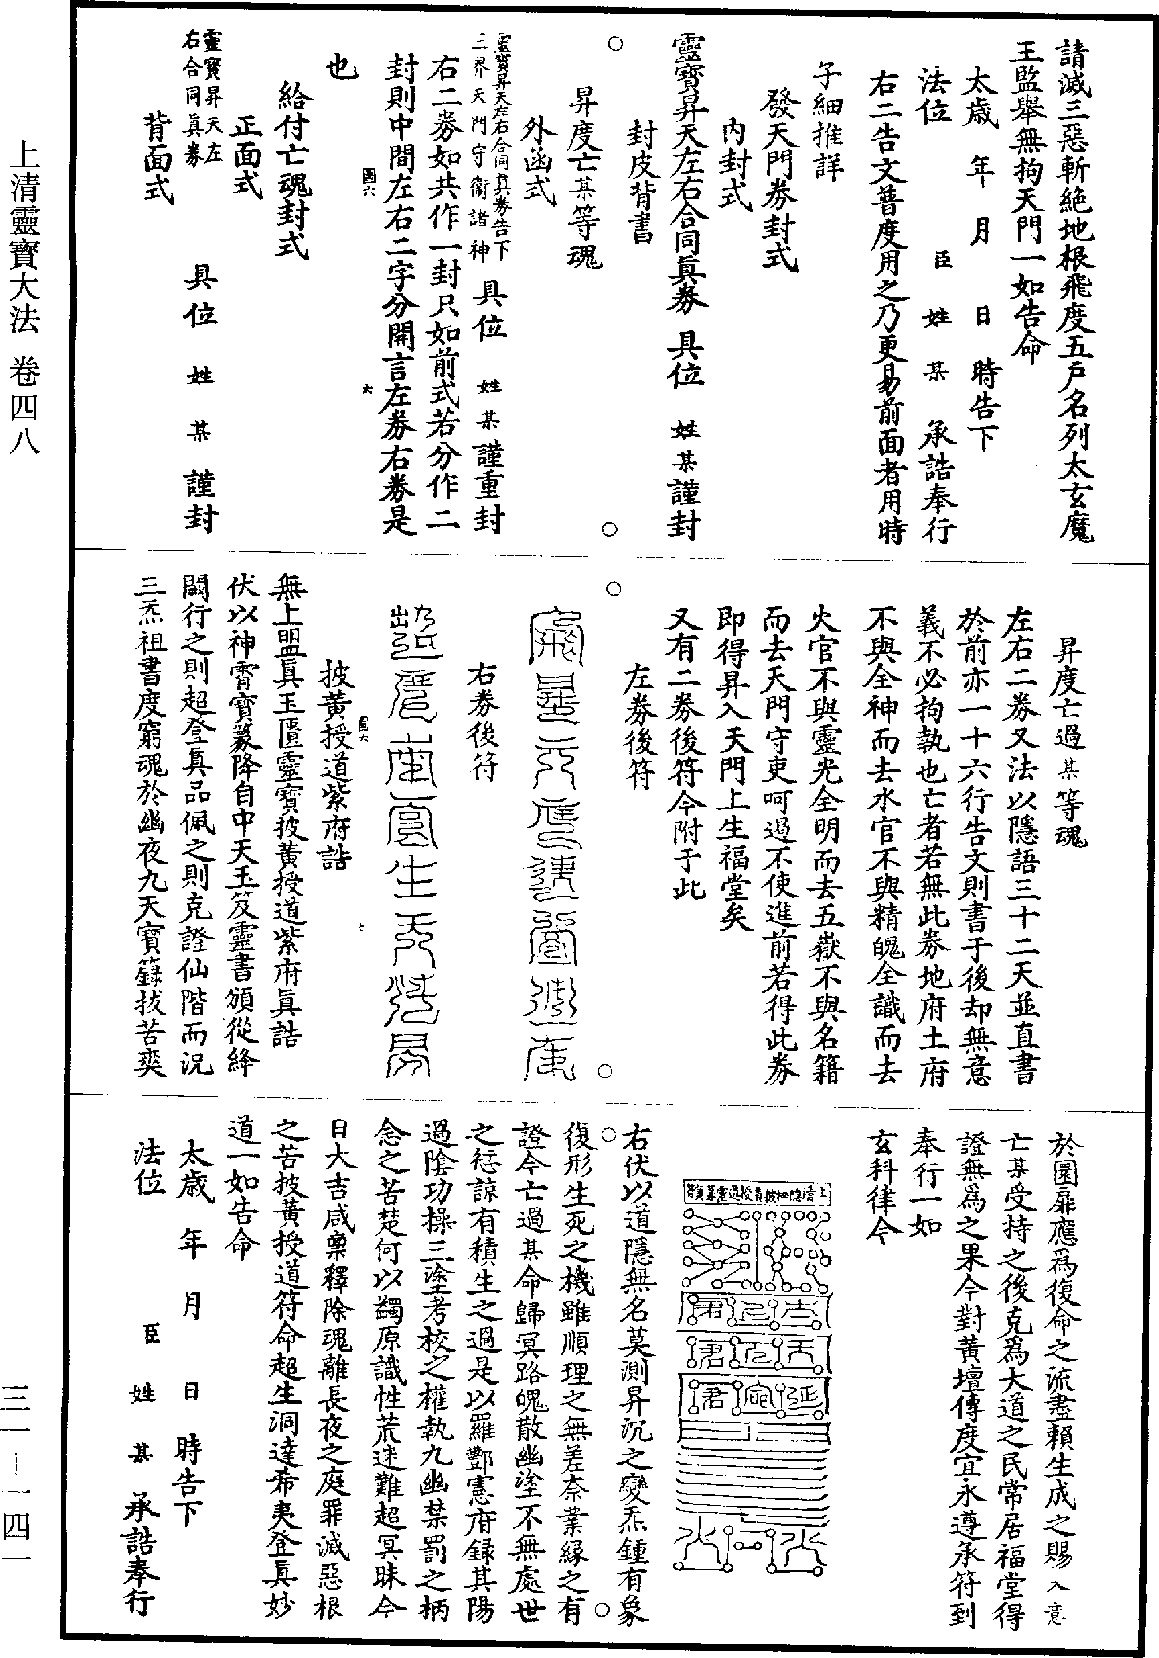 上清靈寶大法 卷四八
三一—一四一
請滅三惡斬絕地根飛度五戶名列太玄魔
王監舉無拘天門一如告命
太歲 年 月 日 時告下
法位 臣 姓 某 承誥奉行
右二告文普度用之乃更易前面者用時
子細推詳
發天門券封式
內封式
靈寶昇天左右合同眞券 具位 姓某謹封
封皮背書
昇度亡某等魂
外函式
靈寶昇天左右合同眞券告下
三界天門守衛諸神 具位 姓某謹重封
右二券如共作一封只如前式若分作二
封則中間左右二字分開言左券右券是
也
給付亡魂封式
正面式
靈寶昇天左
右合同眞券 具位 姓某謹封
背面式
昇度亡過某等魂
左右二券又法以隱語三十二天並直書
於前亦一十六行告文則書于後却無意
義不必拘執也亡者若無此券地府土府
不與全神而去水官不與精魄全識而去
火官不與靈光全明而去五嶽不與名籍
而去天門守吏呵過不使進前若得此券
即得昇入天門上生福堂矣
又有二券後符今附于此
左券後符
右券後符
披黃授道紫府誥
無上盟眞玉匱靈寶披黃授道紫府眞誥
伏以神霄寶篆降自中天玉笈靈書頒從絳
闕行之則超登眞品佩之則克證仙階而況
三炁祖書度窮魂於幽夜九天寶籙拔苦爽
於圜扉應爲復命之流盡賴生成之賜入意
亡某受持之後克爲大道之民常居福堂得
證無為之果今對黃壇傳度宜永遵承符到
奉行一如
玄科律令
右伏以道隱無名莫測昇沉之變炁鍾有象
復形生死之機雖順理之無差奈業緣之有
證今亡過某命歸冥路魄散幽塗不無處世
之愆諒有積生之過是以羅酆憲府録其陽
過陰功操三塗考校之權執九幽禁罰之柄
念之苦楚何以蠲原識性荒迷難超冥昧今
日大吉咸稟釋除魂離長夜之庭罪滅惡根
之苦披黃授道符命超生洞達希夷登眞妙
道一如告命
太歲 年 月 日 時告下
法位 臣 姓 某 承誥奉行